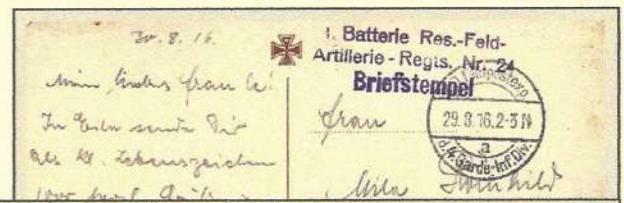 30.8.16.
Mein liebes Frauche!
In Eile sende Dir
als kl. Lebenszeichen
1. Batterie Res.-Feld-
Artillerie-Regts. Nr. 24
Briefstempel
29.8.16.2-3N
a
d.4.Garde-Inf.Div.
Frau
Mila